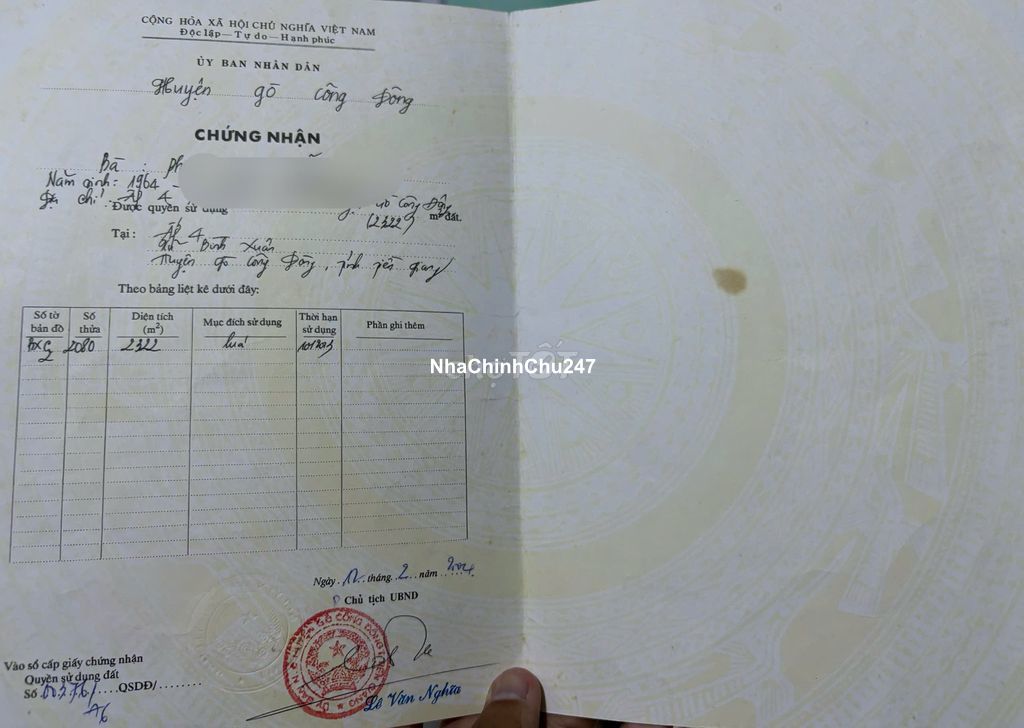 CỘNG HÒA XÃ HỘI CHỦ NGHĨA VIỆT NAM
Độc lập — Tự do — Hạnh phúc
ỦY BAN NHÂN DÂN
Huyện gò công Đông
CHỨNG NHẬN
Bà : Ph
Năm sinh: 1964
Địa chỉ: Ấp 4 gò Công Đông
Được quyền sử dụng (2322) m² đất.
Tại : Ấp 4
Xã Bình Xuân
Huyện gò công Đông, tỉnh tiền giang
Theo bảng liệt kê dưới đây:
Số tờ bản đồ Số thửa Diện tích (m²) Mục đích sử dụng Thời hạn sử dụng Phần ghi thêm
BXC2 2080 2322 lúa
Chợ TỐT
NhaChinhChu247
Ngày 12 tháng 2 năm 2004
Chủ tịch UBND
Lê Văn Nghĩa
Vào sổ cấp giấy chứng nhận
Quyền sử dụng đất
Số 00276/ QSDĐ/
A6